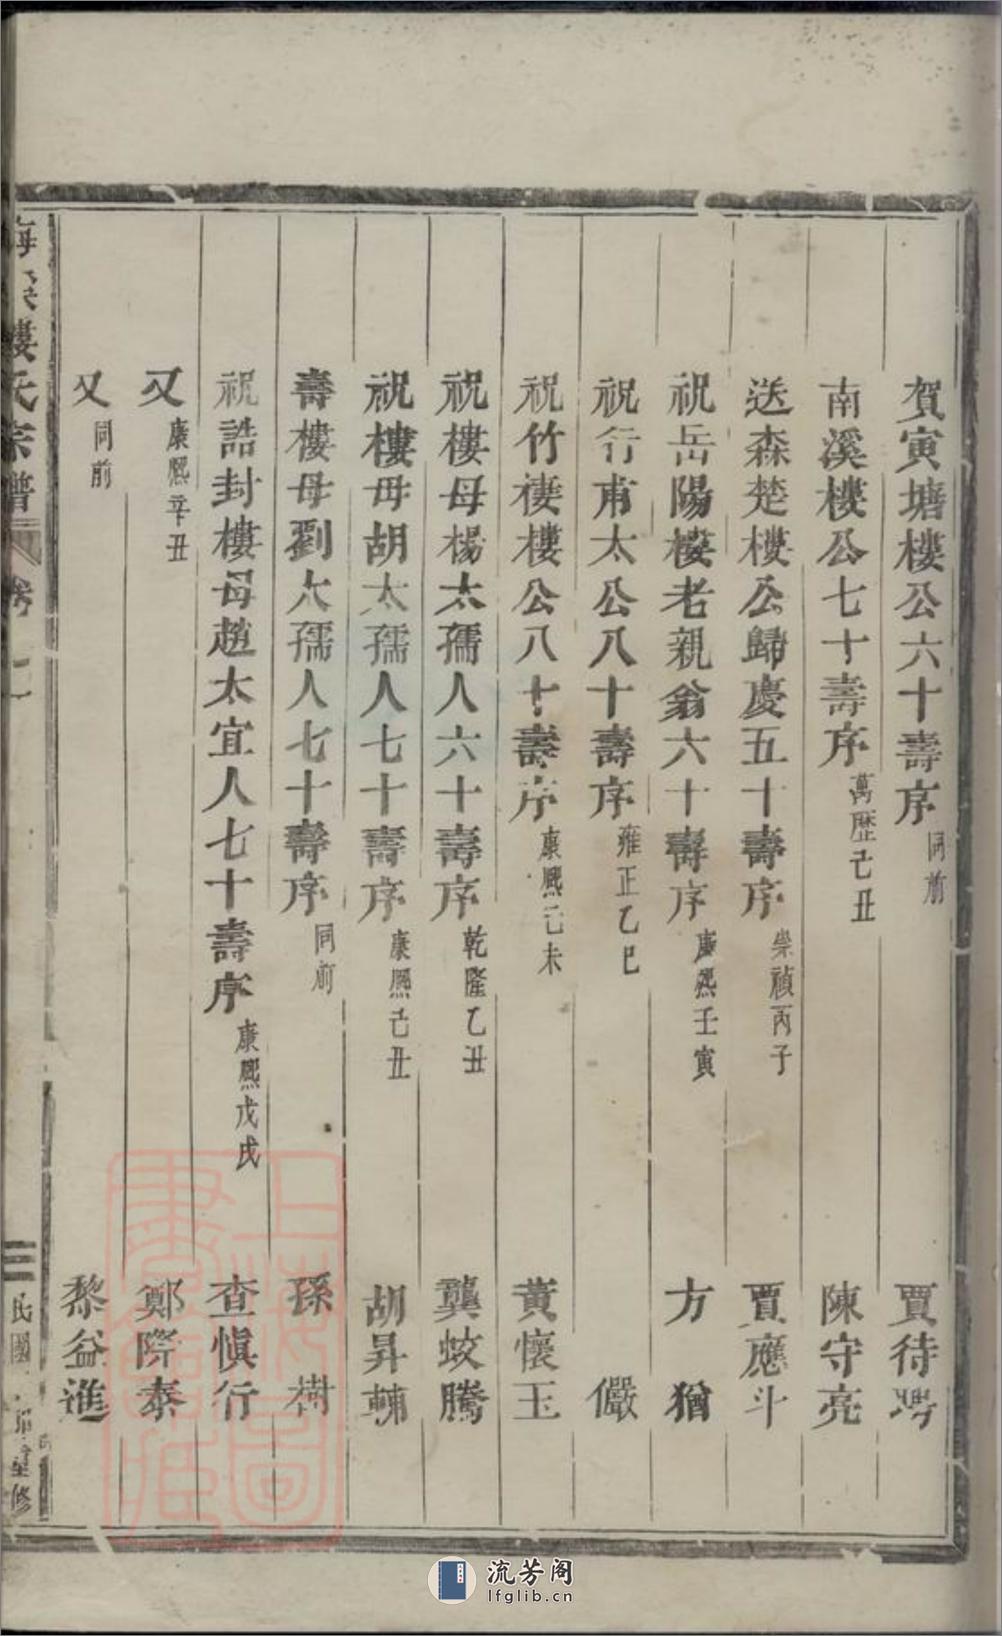 賀寅塘樓公六十壽序 同前 賈待聘
南溪樓公七十壽序 萬歷己丑 陳守亮
送森楚樓公歸慶五十壽序 崇禎丙子 賈應斗
祝岳陽樓老親翁六十壽序 康熙壬寅 方猶
祝行甫太公八十壽序 雍正乙巳 儼
祝竹棲樓公八十壽序 康熙己未 黃懷玉
祝樓母楊太孺人六十壽序 乾隆乙丑 龔蛟騰
祝樓母胡太孺人七十壽序 康熙己丑 胡昇輔
壽樓母劉太孺人七十壽序 同前 孫樹
祝誥封樓母趙太宜人七十壽序 康熙戊戌 查愼行
又 康熙辛丑 鄭際泰
又 同前 黎益進
樓氏宗譜 卷 民國 重修
上海圖書館藏
流芳阁
lfglib.cn